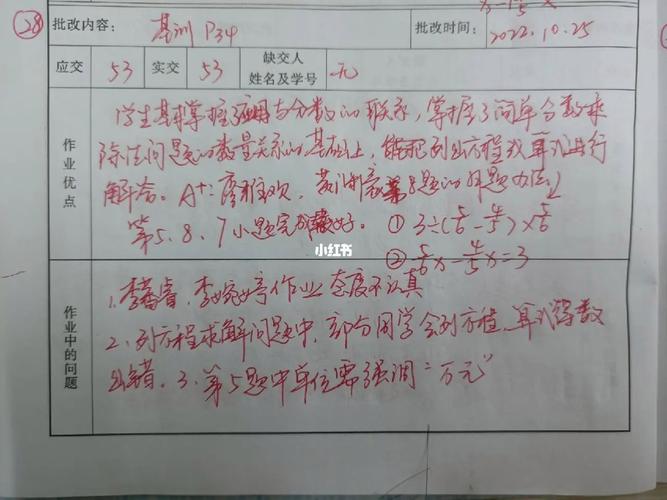 28
批改内容: 基训 P34
批改时间: 2022.10.25
应交 53 实交 53 缺交人姓名及学号 无
作业优点
学生基本掌握了应用与分数的联系,掌握了简单分数乘
除法问题的数量关系的基础上,能把列出方程或算式进行
解答。A+: 第8题的
第5、8、7小题完成较好。① 3÷(5/6-4/5)×5/6
小红书
② 5/6x-4/5x=3
作业中的问题
1. 作业态度不认真
2、列方程求解问题中,部分同学会列方程,算式得数
出错。3、第5题中单位需强调"万元"